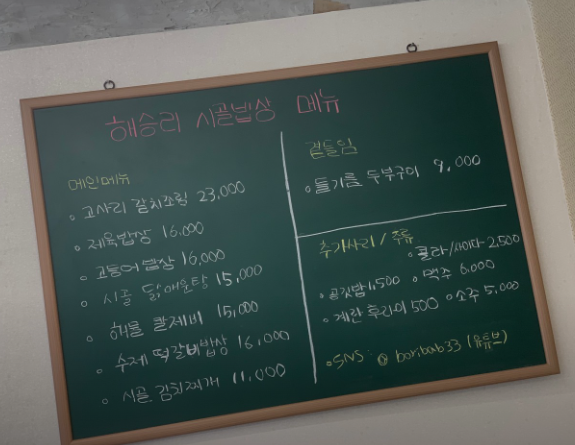 해승리 시골밥상 메뉴
메인메뉴
◦ 고사리 갈치조림 23,000
◦ 제육밥상 16,000
◦ 고등어 밥상 16,000
◦ 시골 닭매운탕 15,000
◦ 해물 칼제비 15,000
◦ 수제 떡갈비밥상 16,000
◦ 시골 김치찌개 11,000
곁들임
◦ 들기름 두부구이 9,000
추가사리 / 주류
◦ 콜라/사이다 2,500
◦ 공깃밥 1,500
◦ 맥주 6,000
◦ 계란 후라이 500
◦ 소주 5,000
◦ SNS : @ boribab33 (유튜브)